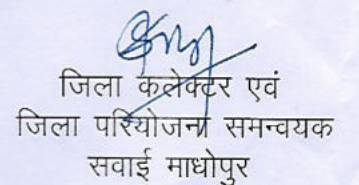 जिला कलेक्टर एवं
जिला परियोजना समन्वयक
सवाई माधोपुर